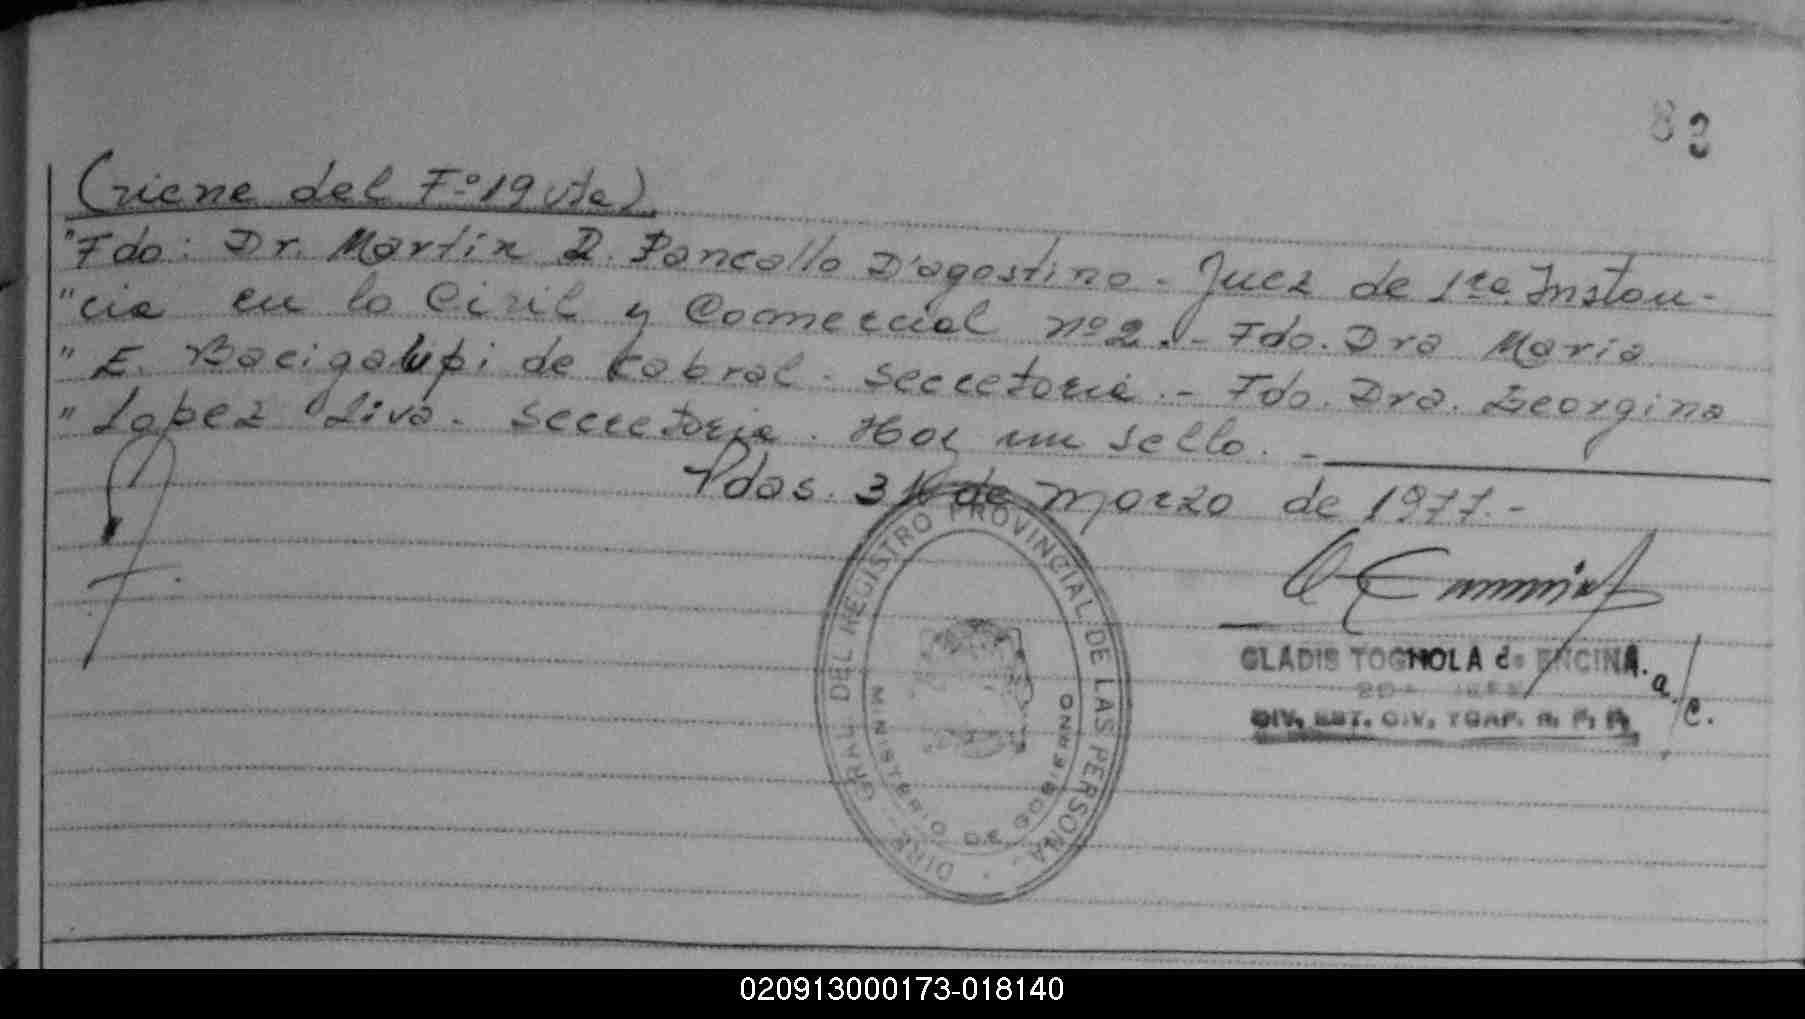 83
(viene del Fº 19 vta)
"Fdo: Dr. Martin D. Poncallo D'agostino - Juez de 1ra. Instan-
"cia en lo Civil y Comercial nº 2. - Fdo. Dra Maria
" E. Bacigalupi de Cabral - Secretaria. - Fdo. Dra. Georgina
" Lopez Liva - Secretaria. Hay un sello. -
Pdas. 31 de marzo de 1977. -
GLADIS TOGNOLA de ENCINA.
a/c.
DIV. EST. CIV. R. P. P.
DEL REGISTRO PROVINCIAL DE LAS PERSONA
MINISTERIO DE GOBIERNO
020913000173-018140